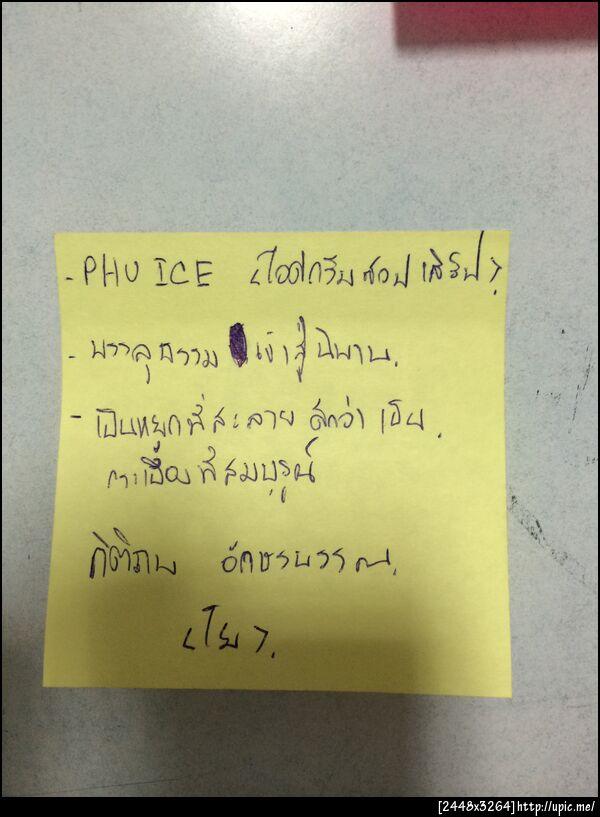 - PHU ICE ไอศกรีมซอฟเสิร์ฟ
- บรรลุธรรม เข้าสู่นิพาน.
- เป็นหยกที่สะลาย ดีกว่า เป็น
กระเบื้องที่สมบูรณ์
กิติภพ อักษรบรรณ.
[2448x3264]http://upic.me/